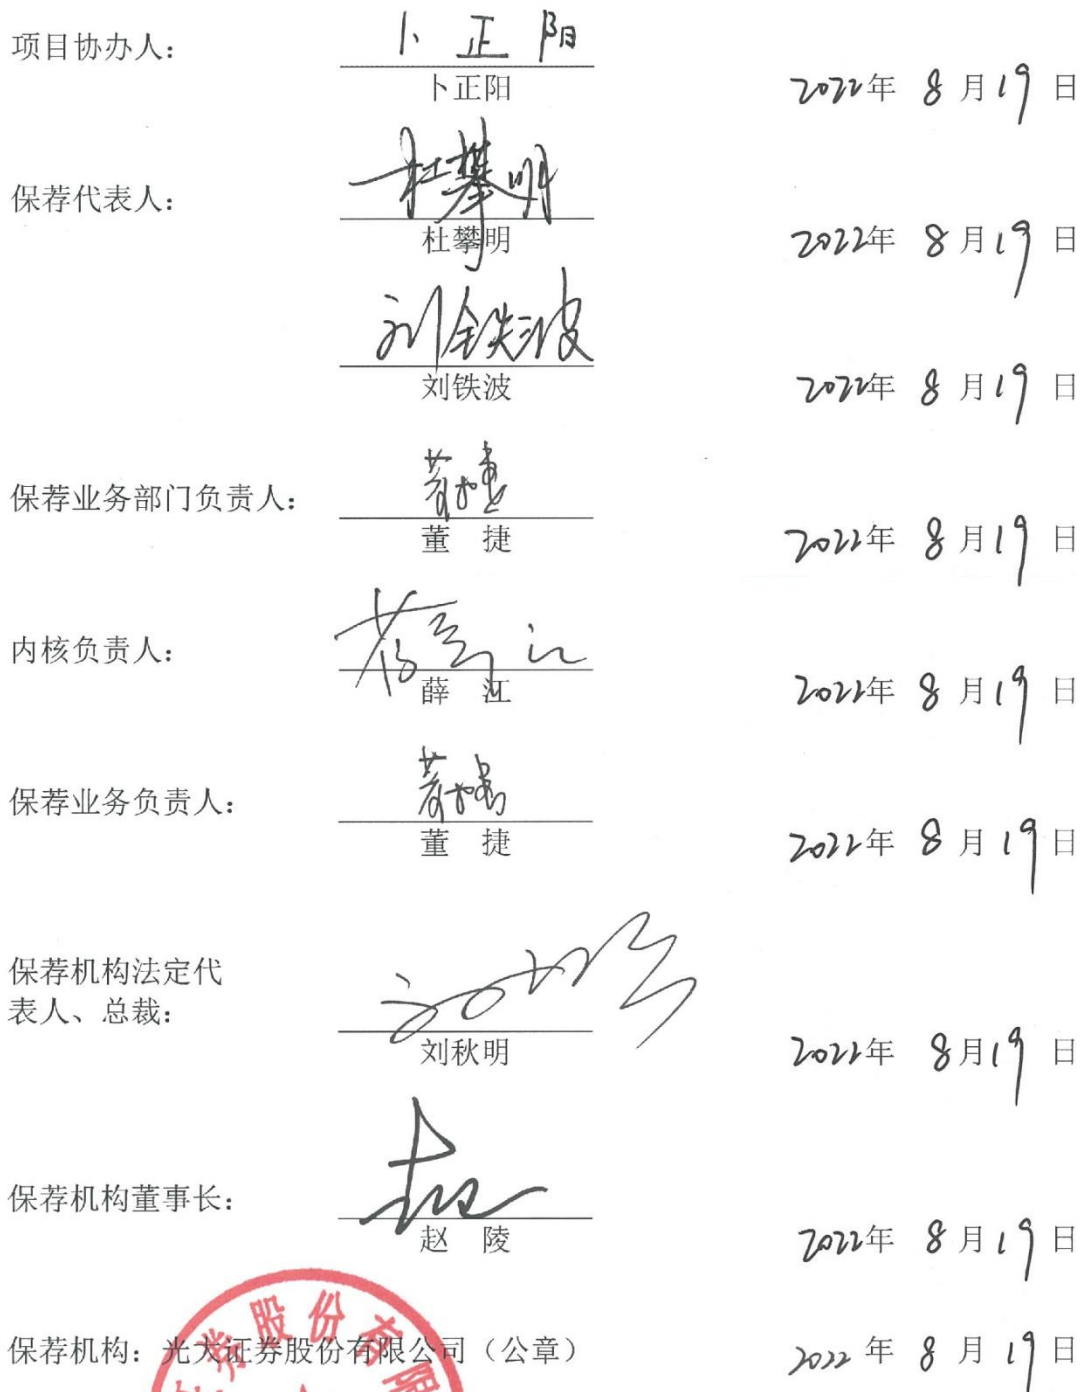 项目协办人：
卜正阳
卜正阳
2022年 8月19日
保荐代表人：
杜攀明
杜攀明
2022年 8月19日
刘铁波
刘铁波
2022年 8月19日
保荐业务部门负责人：
董捷
董 捷
2022年 8月19日
内核负责人：
薛江
薛 江
2022年 8月19日
保荐业务负责人：
董捷
董 捷
2022年 8月19日
保荐机构法定代
表人、总裁：
刘秋明
2022年 8月19日
保荐机构董事长：
赵 陵
2022年 8月19日
保荐机构：光大证券股份有限公司（公章）
2022年 8月19日
券股份有限